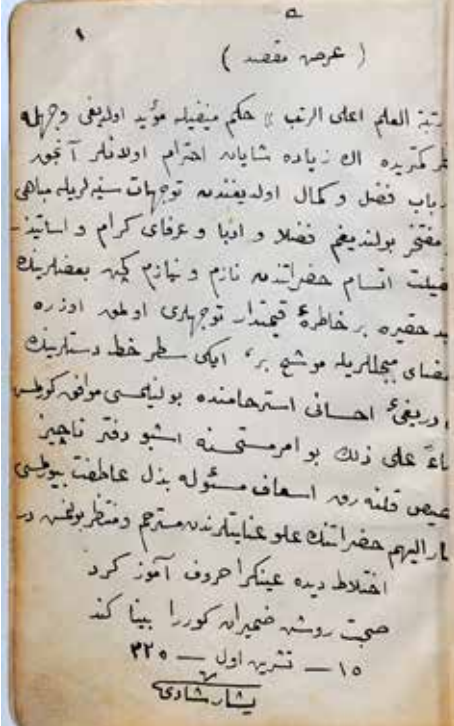 ١
( عرض مقصد )
رتبة العلم اعلى الرتب » حكم منيفيله مؤيد اولديغى وجهله
نظر كمتريده اك زياده شايان احترام اولانلر آنجق
ارباب فضل و كمال اولديغندن توجهات سنيه لريله مباهى
و مفتخر بولنديغم فضلا و ادبا و عرفاى كرام و اساتيذ
فضيلت اتسام حضراتندن نازم و نيازم كچن بعضلرينك
عبد حقيره بر خاطرهٔ قيمتدار توجهلرى اولمق اوزره
امضاى مبجللريله موشح بر، ايكى سطر خط دستلرينك
دريغى احسانى استرحامنده بولنيلمسى موافق كورلمش
بناءً على ذلك بو امر مستحسنه اشبو دفتر ناچيز
تخصيص قلنه رق اسعاف مسئوله بذل عاطفت بيورلمسى
مشار اليهم حضراتنك علو عنايتلرندن مسترحم و منتظر بولنمشدر
اختلاط ديده عينكرا حروف آموز كرد
صحبت روشن ضميران كوررا بينا كند
١٥ — تشرين اول — ٣٢٥
يشار شادى